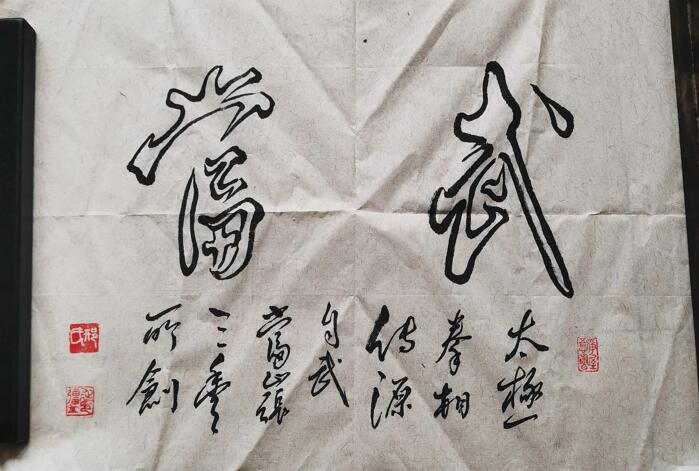 武當
太極
拳相
傳源
自武
當山張
三豐
所創